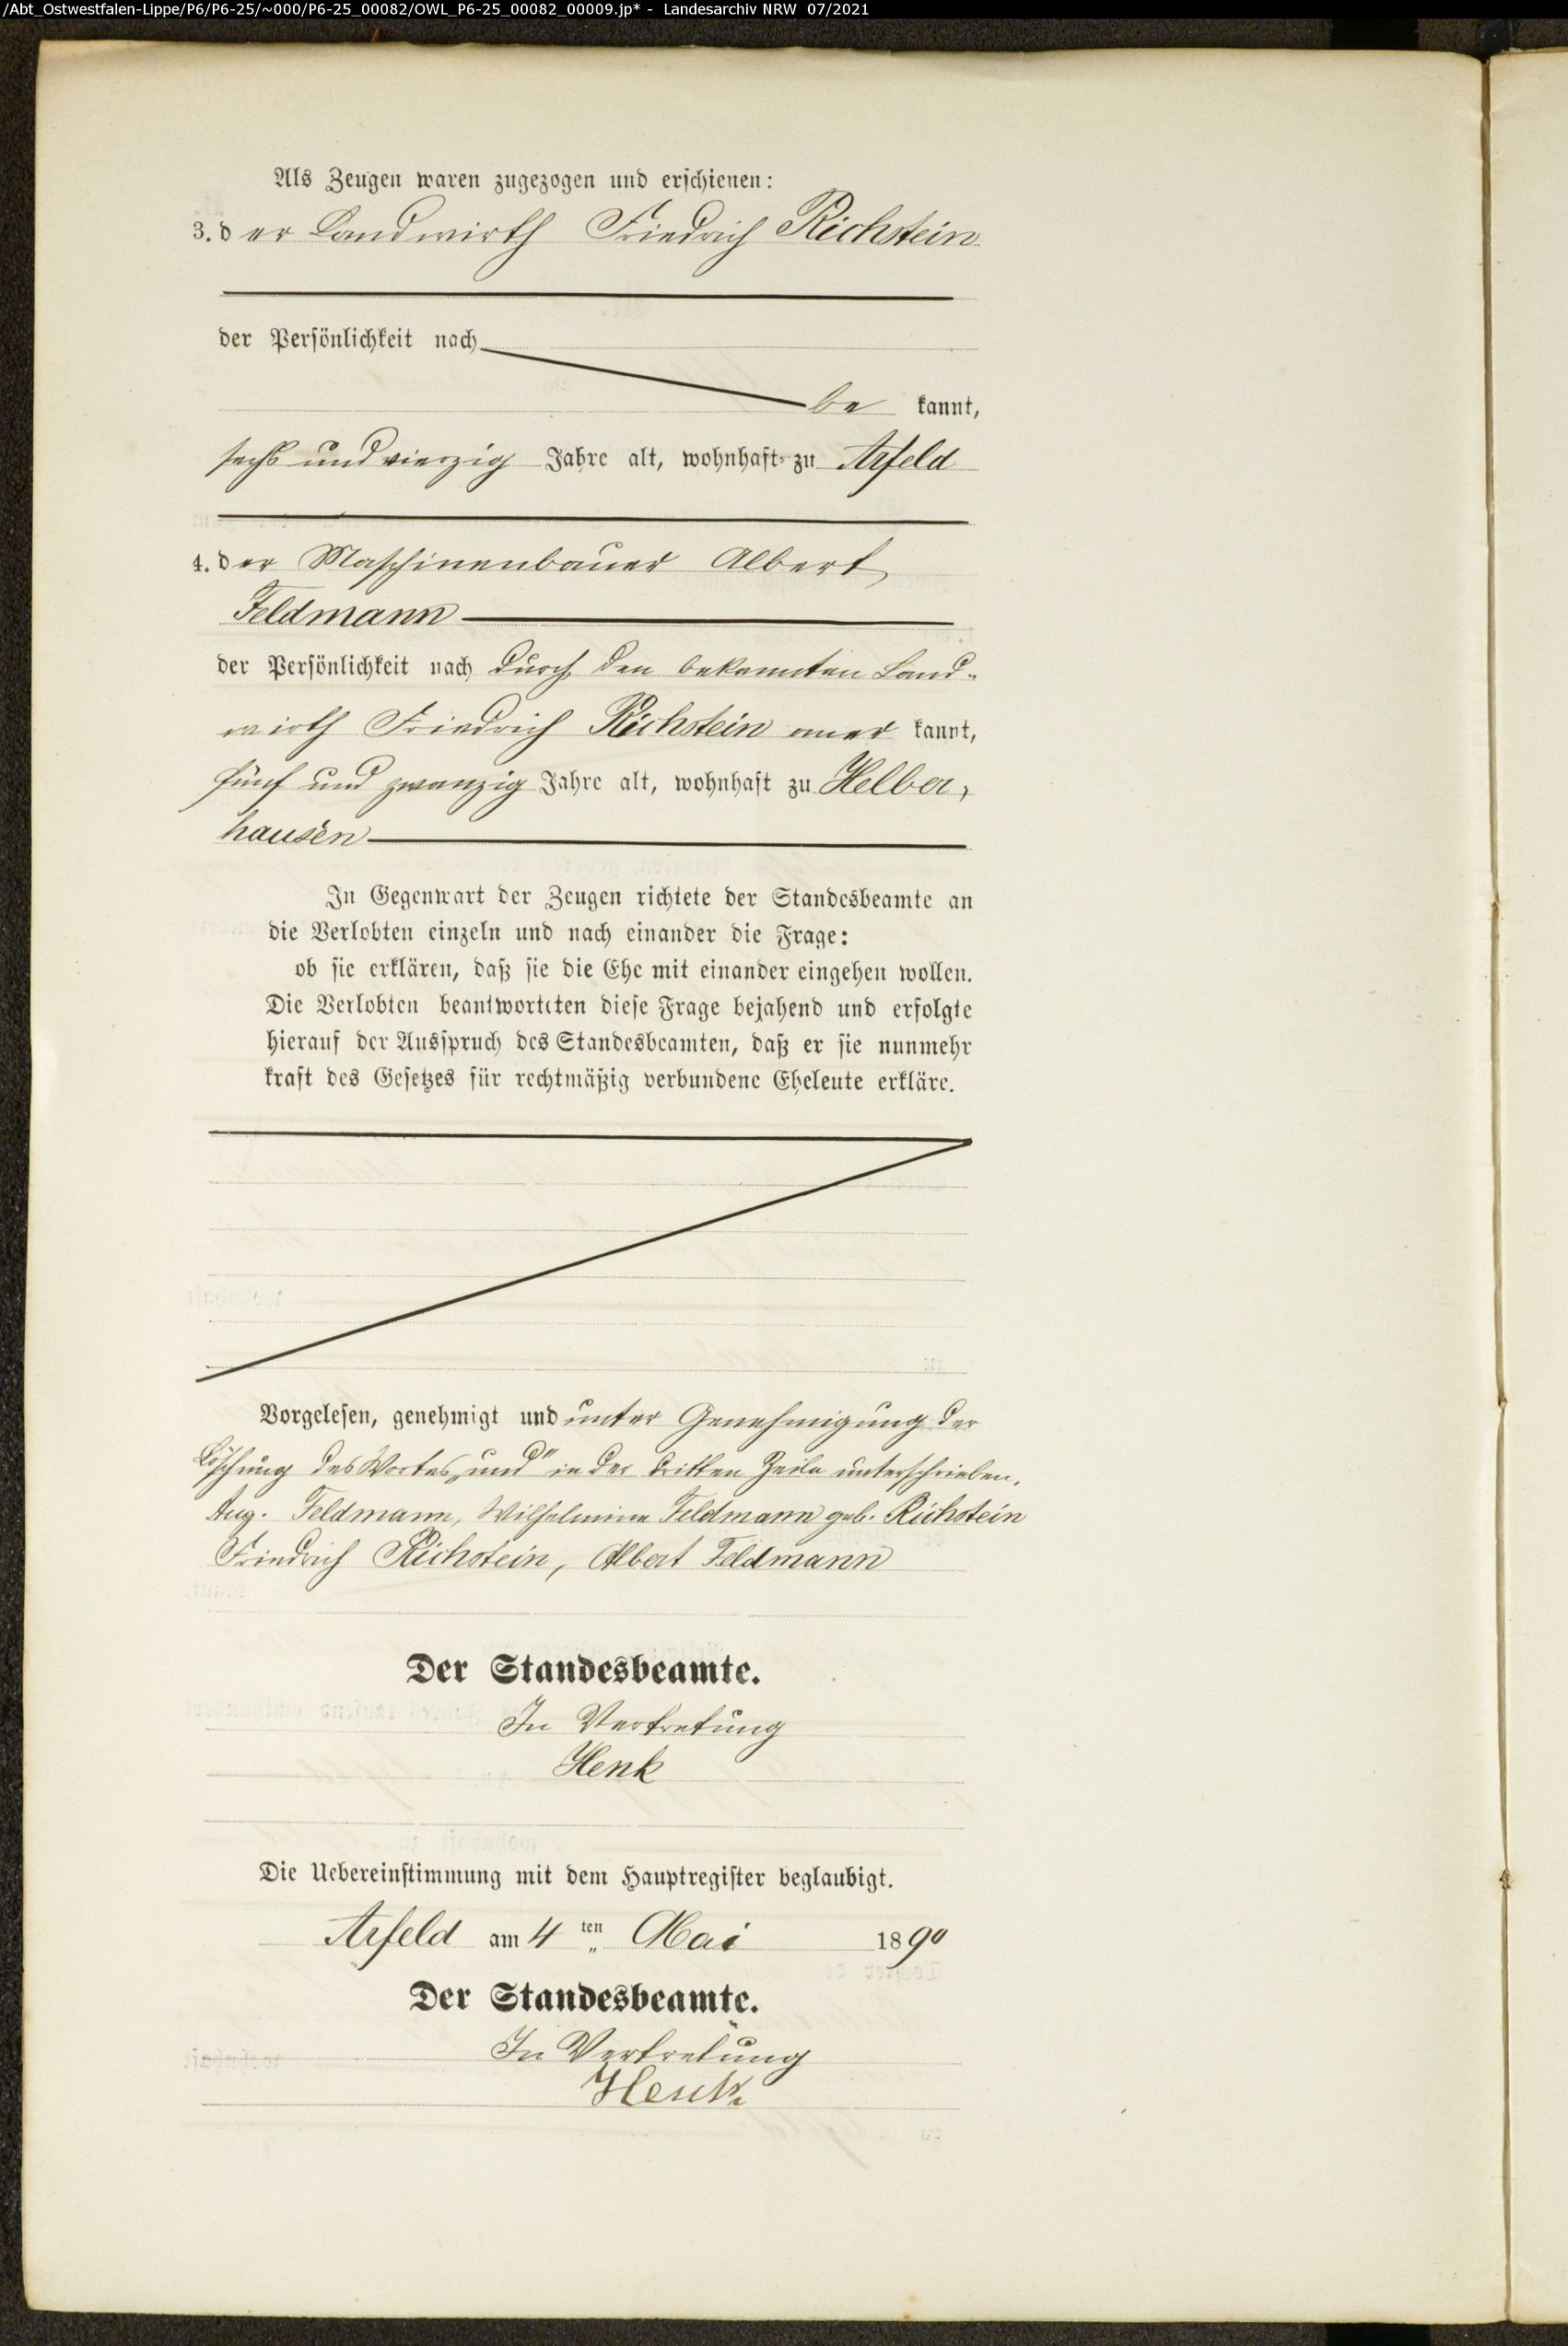 /Abt_Ostwestfalen-Lippe/P6/P6-25/~000/P6-25_00082/OWL_P6-25_00082_00009.jp* - Landesarchiv NRW 07/2021
Als Zeugen waren zugezogen und erschienen:
3. der Landwirth Friedrich Richstein
der Persönlichkeit nach
be kannt,
sechs und vierzig Jahre alt, wohnhaft zu Arfeld
4. der Maschinenbauer Albert
Feldmann
der Persönlichkeit nach durch den bekannten Land-
wirth Friedrich Richstein aner kannt,
fünf und zwanzig Jahre alt, wohnhaft zu Helber,
hausen
In Gegenwart der Zeugen richtete der Standesbeamte an
die Verlobten einzeln und nach einander die Frage:
ob sie erklären, daß sie die Ehe mit einander eingehen wollen.
Die Verlobten beantworteten diese Frage bejahend und erfolgte
hierauf der Ausspruch des Standesbeamten, daß er sie nunmehr
kraft des Gesetzes für rechtmäßig verbundene Eheleute erkläre.
Vorgelesen, genehmigt und unter Genehmigung der
Löschung des Wortes „und" in der dritten Zeile unterschrieben.
Aug. Feldmann, Wilhelmine Feldmann geb. Richstein
Friedrich Richstein, Albert Feldmann
Der Standesbeamte.
In Vertretung
Henk
Die Uebereinstimmung mit dem Hauptregister beglaubigt.
Arfeld am 4 ten Mai 1890
Der Standesbeamte.
In Vertretung
Henk